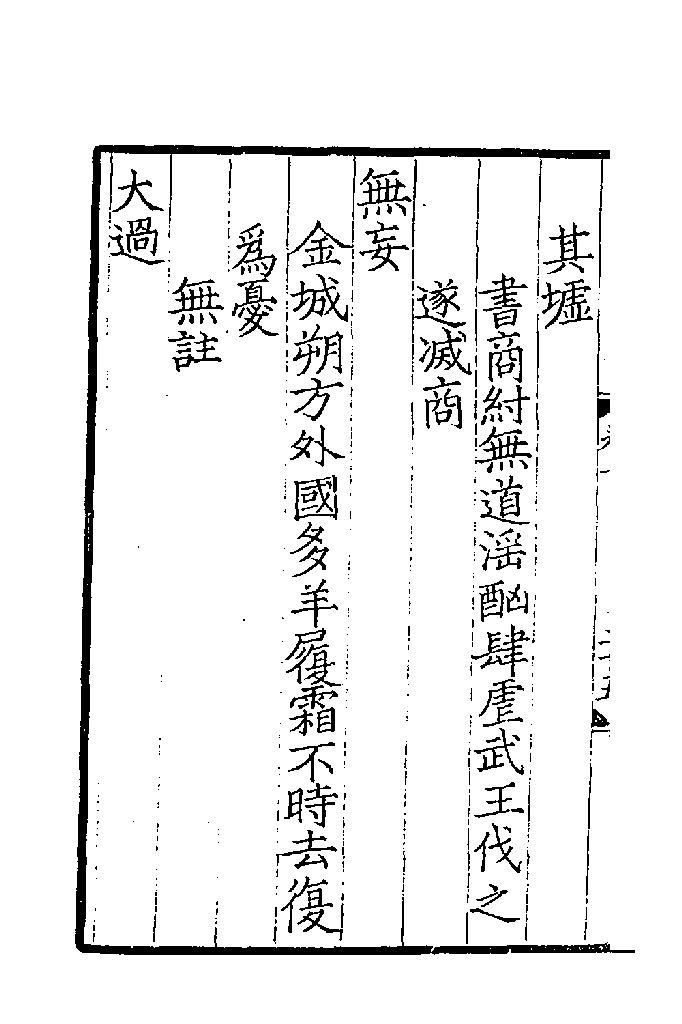 其墟
書商紂無道滛酗肆虐武王伐之
遂滅商
無妄
金城朔方外國多羊履霜不時去復
爲憂
無註
大過